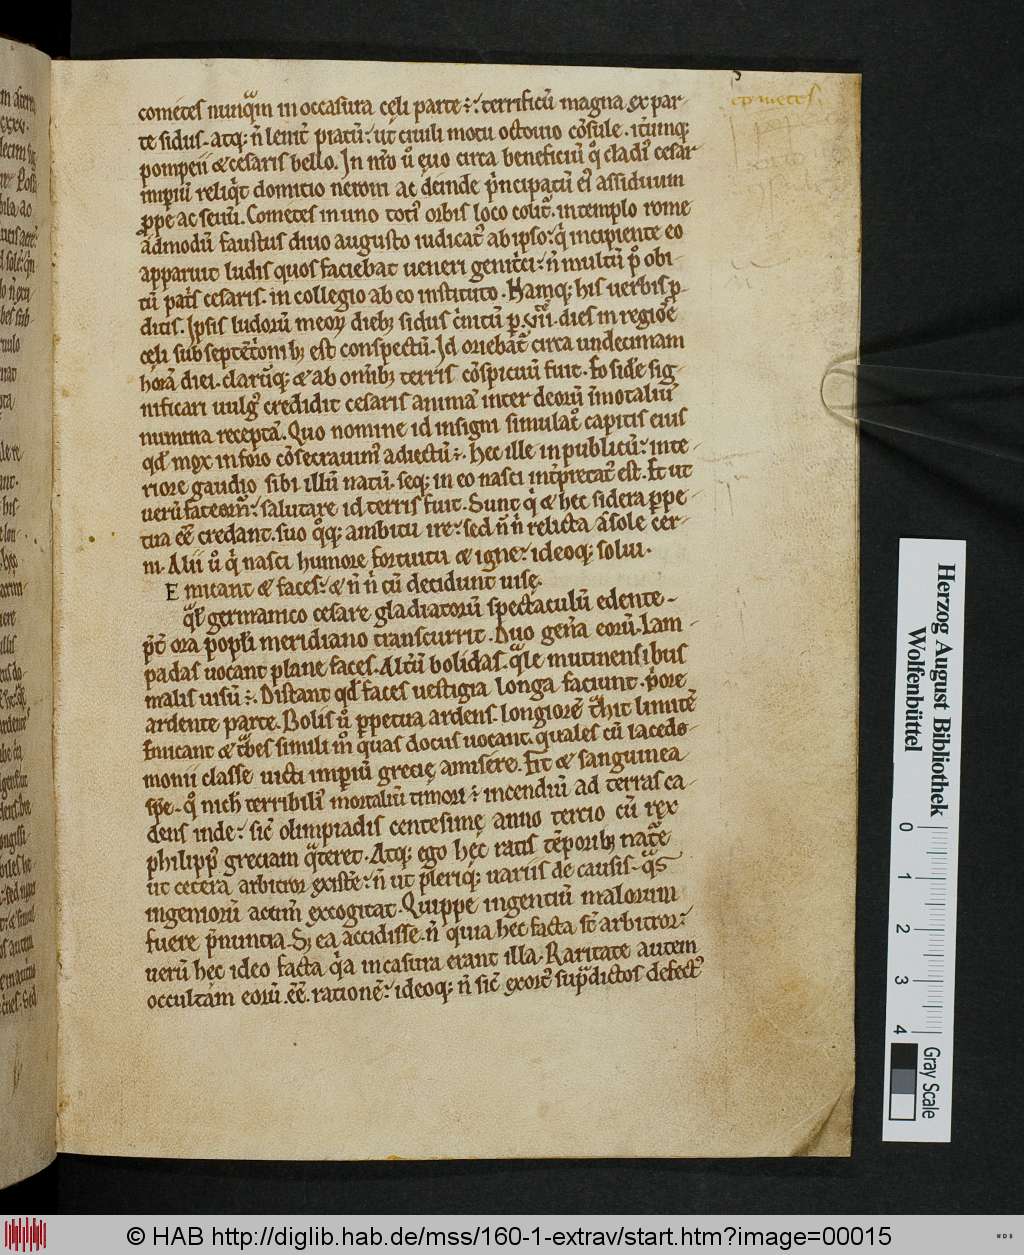 cometes nunq̃m in occasura cęli parte÷ terrificũ magna ex par-
te sidus. atq; ñ leuit̃ piatũ. ut ciuili motu octouio cõsule. it̃umq;
pompeii & cesaris bello. In nr̃o ũ ęuo circa beneficiũ q̊ claudiꝰ cesar
imꝑiũ reliq̃t domicio neroni ac deinde p̃ncipatũ eiꝰ assiduum
ꝓpe ac seuũ. Cometes in uno totiꝰ orbis loco colit̃. in templo rome
ãdmodũ faustus diuo augusto iudicatꝰ ab ipso. q̇ incipiente eo
apparuit ludis quos faciebat ueneri genit̃ci. ñ multũ ṗ obi-
tũ patris cesaris. in collegio ab eo instituto. Namq; his uerbis ꝓ
ditis. Ipsis ludorũ meoꝝ dieb; sidus c̃nitũ ꝑ .VII. dies in regiõe
cęli sub septẽt̃onib; est conspectũ. Id oriebat̃ circa undecimam
horã diei. clarũq; & ab omib; terris cõspicuũ fuit. Eo sidẽ sig-
nificari uulgꝰ credidit cesaris animã inter deorũ ĩmortaliũ
numina receptã. Quo nomine id insigni simulac̃ capitis eiꝰ
qd̃ mox in foro cõsecrauimꝰ adiectũ÷. Hec ille in publicũ. inte-
riore gaudio sibi illũ natũ. seq; in eo nasci int̃pretatꝰ est. Et ut
uerũ fateom̃. salutare id terris fuit. Sunt q̇ & hec sidera ꝑpe-
tua ẽẽ credant. suo q̊q; ambitu ire. sed ñ ñ relicta a sole cer-
ni. Alii ũ q̇ nasci humore fortuitu & igne. ideoq; solui.
Emicant & faces. & ñ ñ cũ decidunt uisę.
q̃l germanico cesare gladiatorũ spectaculũ edente-
p̃t̃ ora pop̃li meridiano transcurrit. Duo geñra eorũ. Lam-
padas uocant plane faces. Altũ bolidas. q̃le mutinensibus
malis uisũ÷. Distant qd̃ faces uestigia longa faciunt. p̃ore
ardente parte. Bolis ũ ꝑpetua ardens. longiorẽ t̃hit limitẽ
Emicant & t̃bes simili m̊ quas docus uocant. quales cũ lacedo-
monii classe uicti imꝑiũ grecię amisere. Fit & sanguinea
spẽ. q̊ nich̃ terribiliꝰ mortaliũ timori ÷ incendiũ ad terras ca-
dens inde. sic̃ olimpiadis centesimę anno tercio cũ rex
philippꝰ greciam q̃teret. Atq; ego hęc ratis tẽporib; nat̃ę
ut cetera arbitror existe. ñ ut pleriq; uariis de causis. q̃s
ingeniorũ acum̃ excogitat. Quippe ingentiũ malorum
fuere p̃nuntia. Sꝫ ea accidisse. ñ quia hec facta st̃ arbitror.
uerũ hec ideo facta q̃a in casura erant illa. Raritate autem
occultam eorũ ẽẽ rationẽ. ideoq; ñ sic̃ exort̃ sup̃dictos defectꝰ
cometes.
Herzog August Bibliothek
Wolfenbüttel
0
1
2
3
4
Gray Scale
© HAB http://diglib.hab.de/mss/160-1-extrav/start.htm?image=00015